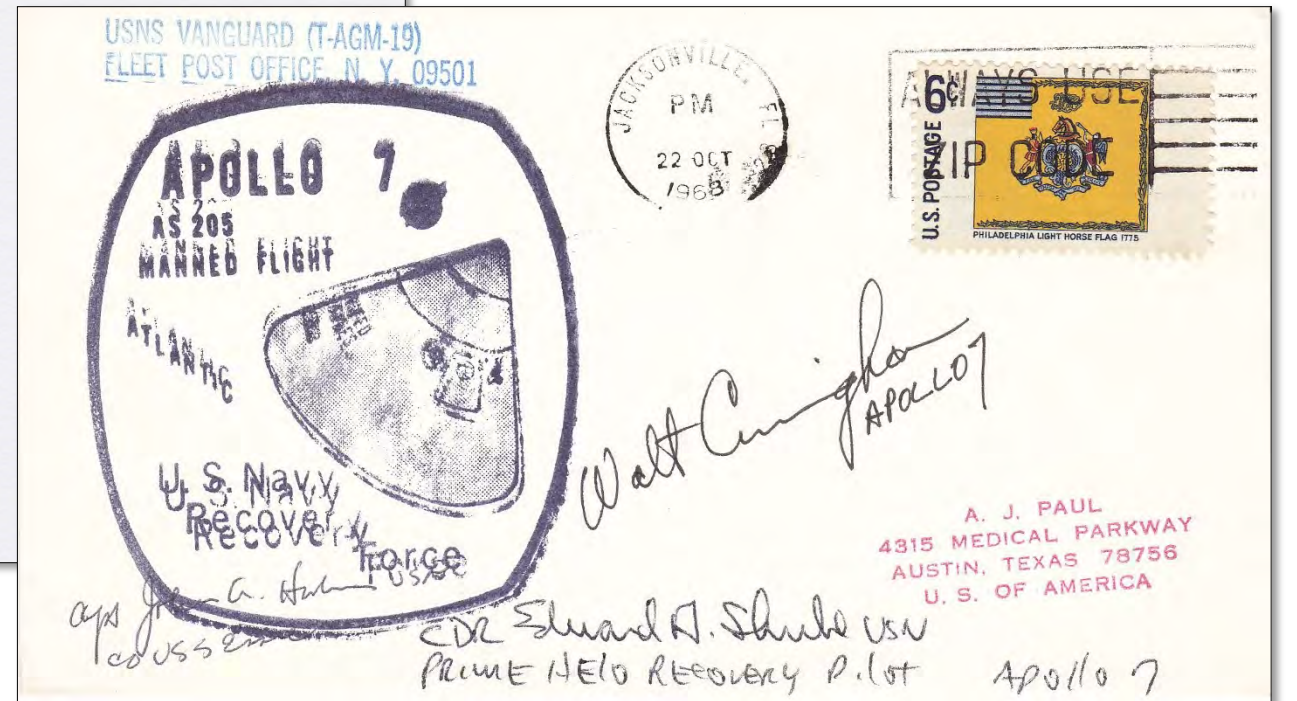 USNS VANGUARD (T-AGM-19)
FLEET POST OFFICE N. Y. 09501
JACKSONVILLE, FL
PM
22 OCT
1968
ALWAYS USE
ZIP CODE
6¢
U.S. POSTAGE
PHILADELPHIA LIGHT HORSE FLAG 1775
APOLLO 7
AS 205
MANNED FLIGHT
ATLANTIC
U. S. Navy
Recovery
Force
Walt Cunningham
APOLLO 7
A. J. PAUL
4315 MEDICAL PARKWAY
AUSTIN, TEXAS 78756
U. S. OF AMERICA
Capt John A. USN
CO USS Essex
CDR Edward A. USN
PRIME HELO RECOVERY Pilot Apollo 7